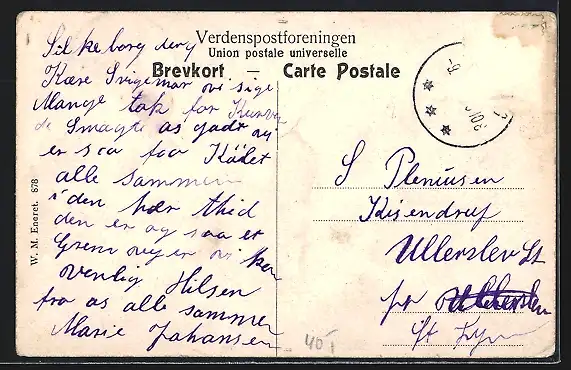 Verdenspostforeningen
Union postale universelle
Brevkort — Carte Postale
Silkeborg den
Kære Svigemor vi sige
Mange tak for Kurven
de Smagte as godt
er saa faa Kødet
alle sammen
i den hær thid
den er og saa et
Grem
venlig Hilsen
fra as alle sammen
Marie Johansen
S Pleniusen
Kisendrup
Ullerslev St
pr Ullerslev
St Fyn
W. M. Eneret. 878
40